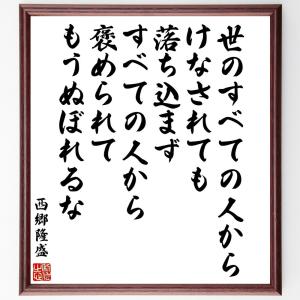 世のすべての人から
けなされても
落ち込まず
すべての人から
褒められて
もうぬぼれるな
西郷隆盛